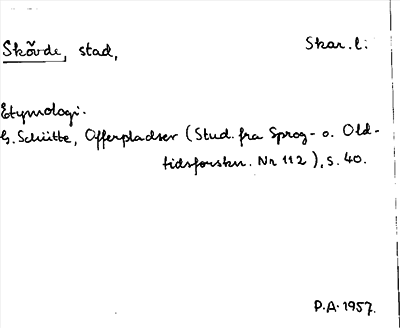 Skövde, stad, Skar. l:
Etymologi.
G. Schütte, Offerpladser (Stud. fra Sprog- o. Old-
tidsforskn. Nr 112), s. 40.
P.A. 1957.